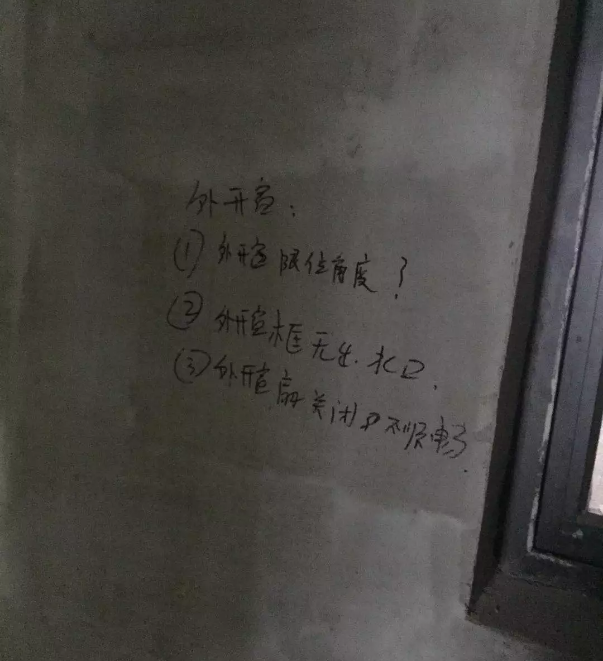 外开窗：
① 外开窗限位角度？
② 外开窗框无出水口.
③ 外开窗扇关闭不顺畅.